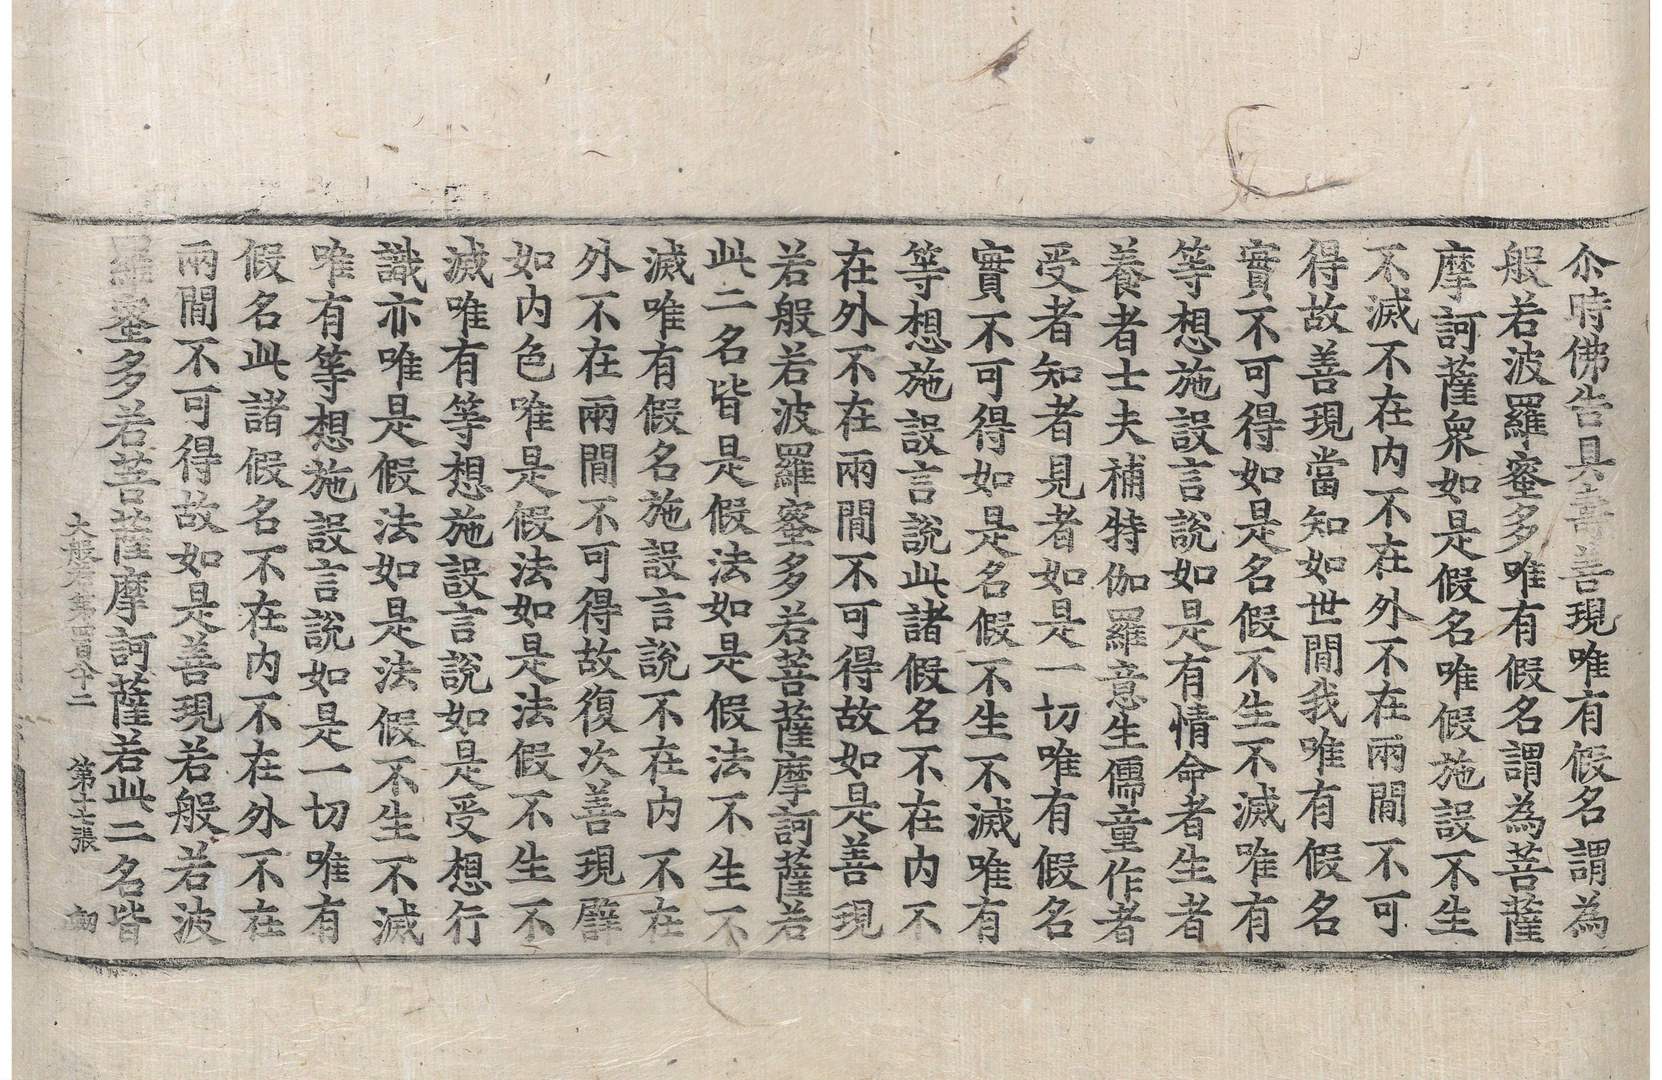 尒時佛告具壽善現唯有假名謂為
般若波羅蜜多唯有假名謂為菩薩
摩訶薩衆如是假名唯假施設不生
不滅不在内不在外不在兩間不可
得故善現當知如世間我唯有假名
實不可得如是名假不生不滅唯有
等想施設言說如是有情命者生者
養者士夫補特伽羅意生儒童作者
受者知者見者如是一切唯有假名
實不可得如是名假不生不滅唯有
等想施設言說此諸假名不在内不
在外不在兩間不可得故如是善現
若般若波羅蜜多若菩薩摩訶薩若
此二名皆是假法如是假法不生不
滅唯有假名施設言說不在内不在
外不在兩間不可得故復次善現譬
如内色唯是假法如是法假不生不
滅唯有等想施設言說如是受想行
識亦唯是假法如是法假不生不滅
唯有等想施設言說如是一切唯有
假名此諸假名不在内不在外不在
兩間不可得故如是善現若般若波
羅蜜多若菩薩摩訶薩若此二名皆
大般若第四百八十二 第十二張